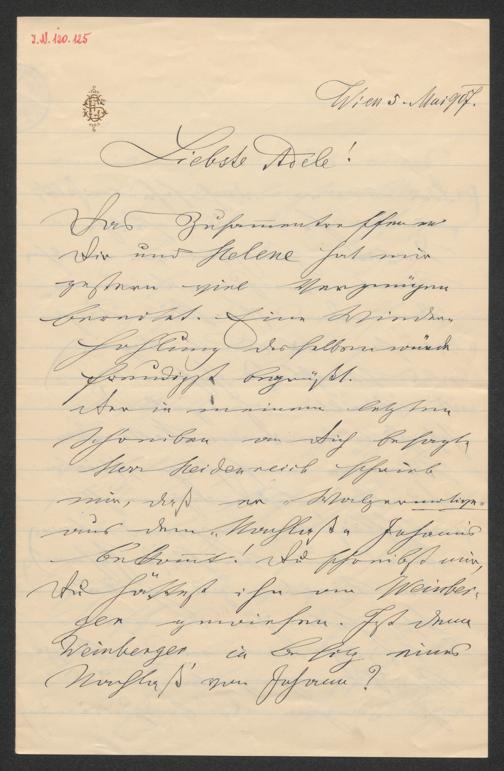 I.N. 120.125
Wien 5. Mai 907.
Liebste Adele!
Das Zusammentreffen m
Dir und Helene hat mir
gestern viel Vergnügen
bereitet. Eine Wieder-
hohlung desselben würde
freudigst begrüßt.
Der in meinem letzten
Schreiben an Dich besagte
Herr Heidenreich schrieb
mir, daß er „Walzermotive"
aus dem „Nachlaß" Johanns
bekommt! Du schreibst mir,
Du hättest ihn an Weinber-
ger gewiesen. Ist denn
Weinberger in Besitz eines
Nachlaß' von Johann?